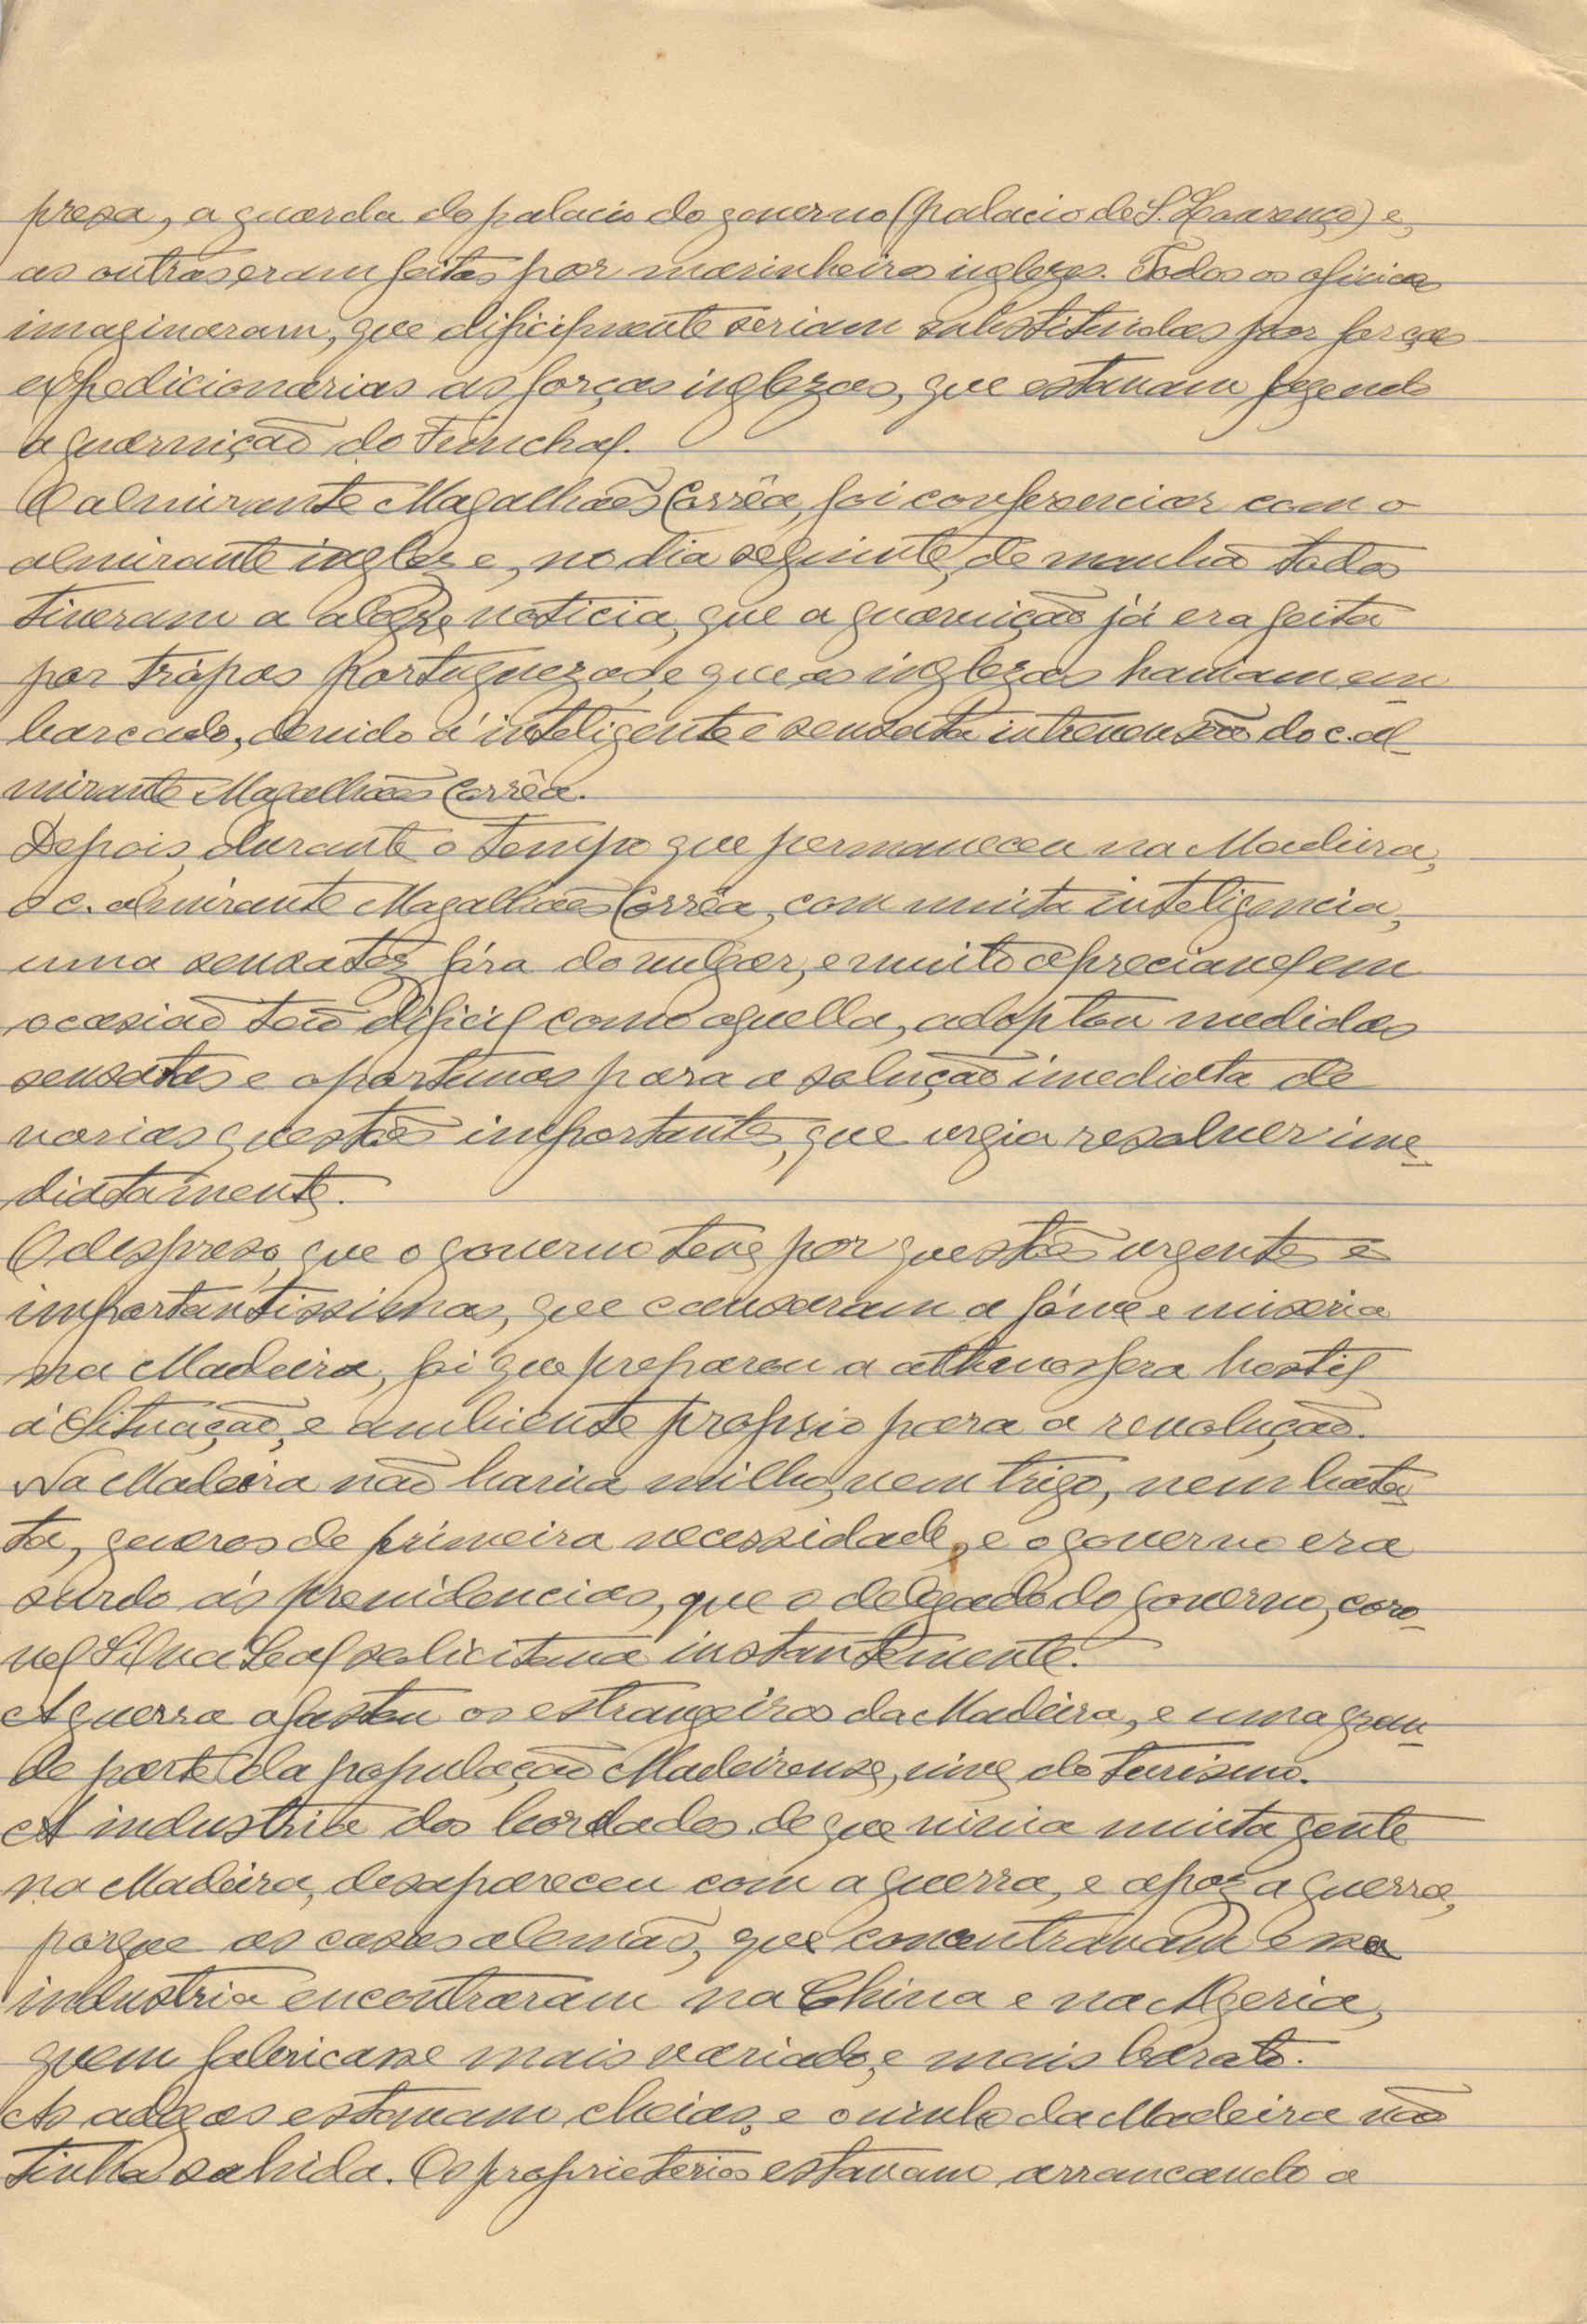 presa, a guarda do palacio do governo (palacio de S. Lourenço) e,
as outras eram feitas por marinheiros inglezes. Todos os oficiaes
imaginaram, que dificilmente seriam substituidas por forças
expedicionarias as forças inglezas, que estavam fazendo
a guarnição do Funchal.
O almirante Magalhães Corrêa, foi conferenciar com o
almirante inglez e, no dia seguinte, de manhã todos
tiveram a alegre noticia, que a guarnição já era feita
por trópas Portuguezas, e que as inglezas haviam em
barcado, devido á inteligente e sensata intrevensão do c. al_
mirante Magalhães Corrêa.
Depois, durante o tempo que permaneceu na Madeira,
o c. almirante Magalhães Corrêa, com muita inteligencia,
uma sensatez fóra do vulgar, e muito apreciavel em
ocasião tão dificil como aquella, adoptou medidas
sensatas e oportunas para a solução imediata de
varias questões importantes, que urgia resolver ime_
diatamente.
O despreso, que o governo teve por questões urgentes e
importantissimas, que causaram a fóme e miseria
na Madeira, foi que preparou a athmosfera hostil
á Situação, e ambiente proprio para a revolução.
Na Madeira não havia milho, nem trigo, nem bata_
ta, generos de primeira necessidade, e o governo era
surdo ás previdencias, que o delegado do governo, coro_
nel Silva Leal solicitava instantemente.
A guerra afastou os estrangeiros da Madeira, e uma gran_
de parte da população Madeirense, vive do turismo.
A industria dos bordados de que vivia muita gente
na Madeira, desapareceu com a guerra, e apoz a guerra,
porque as casas alemãs, que concentravam essa
industria encontraram na China e na Algeria,
quem fabricasse mais variado, e mais barato.
As adegas estavam cheias, e o vinho da Madeira não
tinha sahida. Os proprietarios estavam arrancando a